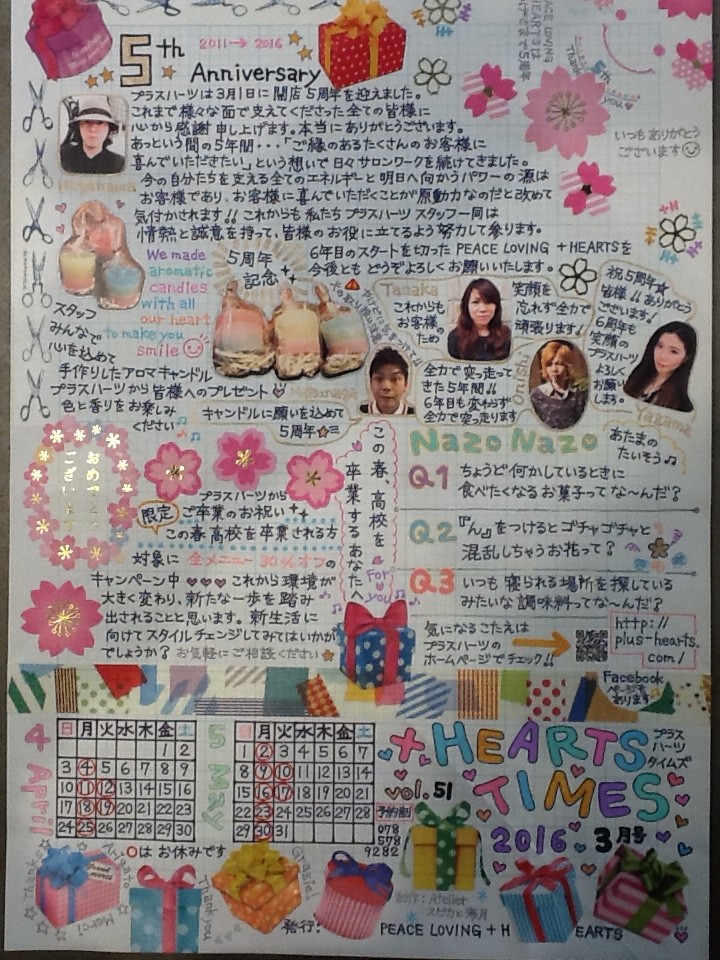 5th
2011→2016
Anniversary
プラスハーツは3月1日に開店5周年を迎えました。
これまで様々な面で支えてくださった全ての皆様に
心から感謝申し上げます。本当にありがとうございます。
あっという間の5年間・・・「ご縁のあるたくさんのお客様に
喜んでいただきたい」という想いで日々サロンワークを続けてきました。
今の自分たちを支える全てのエネルギーと明日へ向かうパワーの源は
お客様であり、お客様に喜んでいただくことが原動力なのだと改めて
気付かされます!! これからも私たちプラスハーツスタッフ一同は
情熱と誠意を持って、皆様のお役に立てるよう努力して参ります。
6年目のスタートを切った PEACE LOVING +HEARTSを
今後ともどうぞよろしくお願いいたします。
いつもありがとう
ございます
We made
aromatic
candles
with all
our heart
to make you
smile
5周年
記念
スタッフ
みんなで
心を込めて
手作りしたアロマキャンドル
プラスハーツから皆様へのプレゼント
色と香りをお楽しみ
ください
キャンドルに願いを込めて
5周年
Tanaka
これからも
お客様の
ため
笑顔を
忘れず全力で
頑張ります!
全力で突っ走って
きた5年間!!
6年目も変わらず
全力で突っ走ります
祝5周年☆
皆様!!ありがとう
ございます!
6周年も
笑顔の
プラスハーツ
よろしく
お願い
します。
おめでとう
ございます
プラスハーツから
限定 ご卒業のお祝い
この春高校を卒業される方
対象に 全メニュー30%オフの
キャンペーン中♥♥♥これから環境が
大きく変わり、新たな一歩を踏み
出されることと思います。新生活に
向けてスタイルチェンジしてみてはいかが
でしょうか? お気軽にご相談ください☆
この春、高校を
卒業するあなたへ
For you
Nazo Nazo
あたまの
たいそう♫
Q1 ちょうど何かしているときに
食べたくなるお菓子ってな〜んだ?
Q2 『ん』をつけるとゴチャゴチャと
混乱しちゃうお花って?
Q3 いつも寝られる場所を探している
みたいな調味料ってな〜んだ?
気になるこたえは
プラスハーツの
ホームページでチェック!!
http://
plus-hearts.
com/
Facebook
ページも
あります
4 April
日 月 火 水 木 金 土
1 2
3 4 5 6 7 8 9
10 11 12 13 14 15 16
17 18 19 20 21 22 23
24 25 26 27 28 29 30
5 May
日 月 火 水 木 金 土
1 2 3 4 5 6 7
8 9 10 11 12 13 14
15 16 17 18 19 20 21
22 23 24 25 26 27 28
29 30 31
○はお休みです
予約制
078
578
9282
+HEARTS
プラス
ハーツ
タイムズ
vol.51 TIMES
2016 3月号
Thanks
Merci
Thankyou
Grazie!
発行:
PEACE LOVING + HEARTS